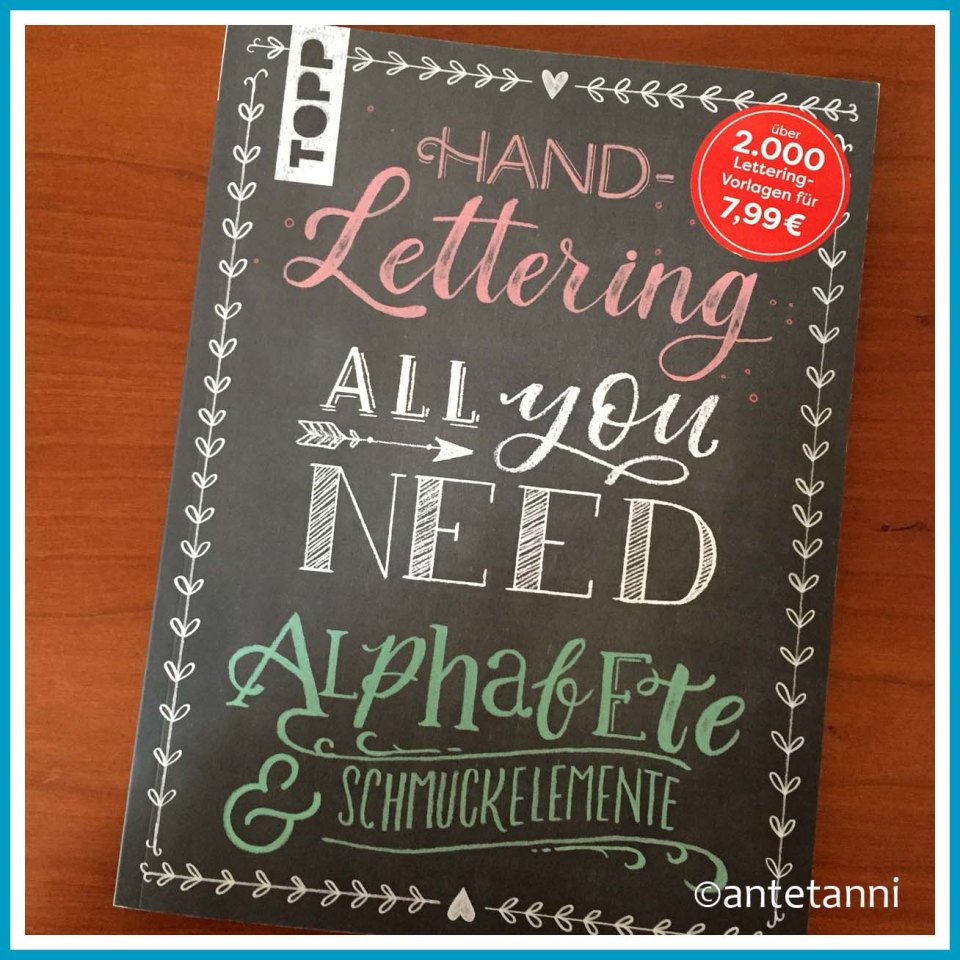 TOPP
HAND-
Lettering
über
2.000
Lettering-
Vorlagen für
7,99 €
ALL you
NEED
AlphabEte
& SCHMUCKELEMENTE
©antetanni